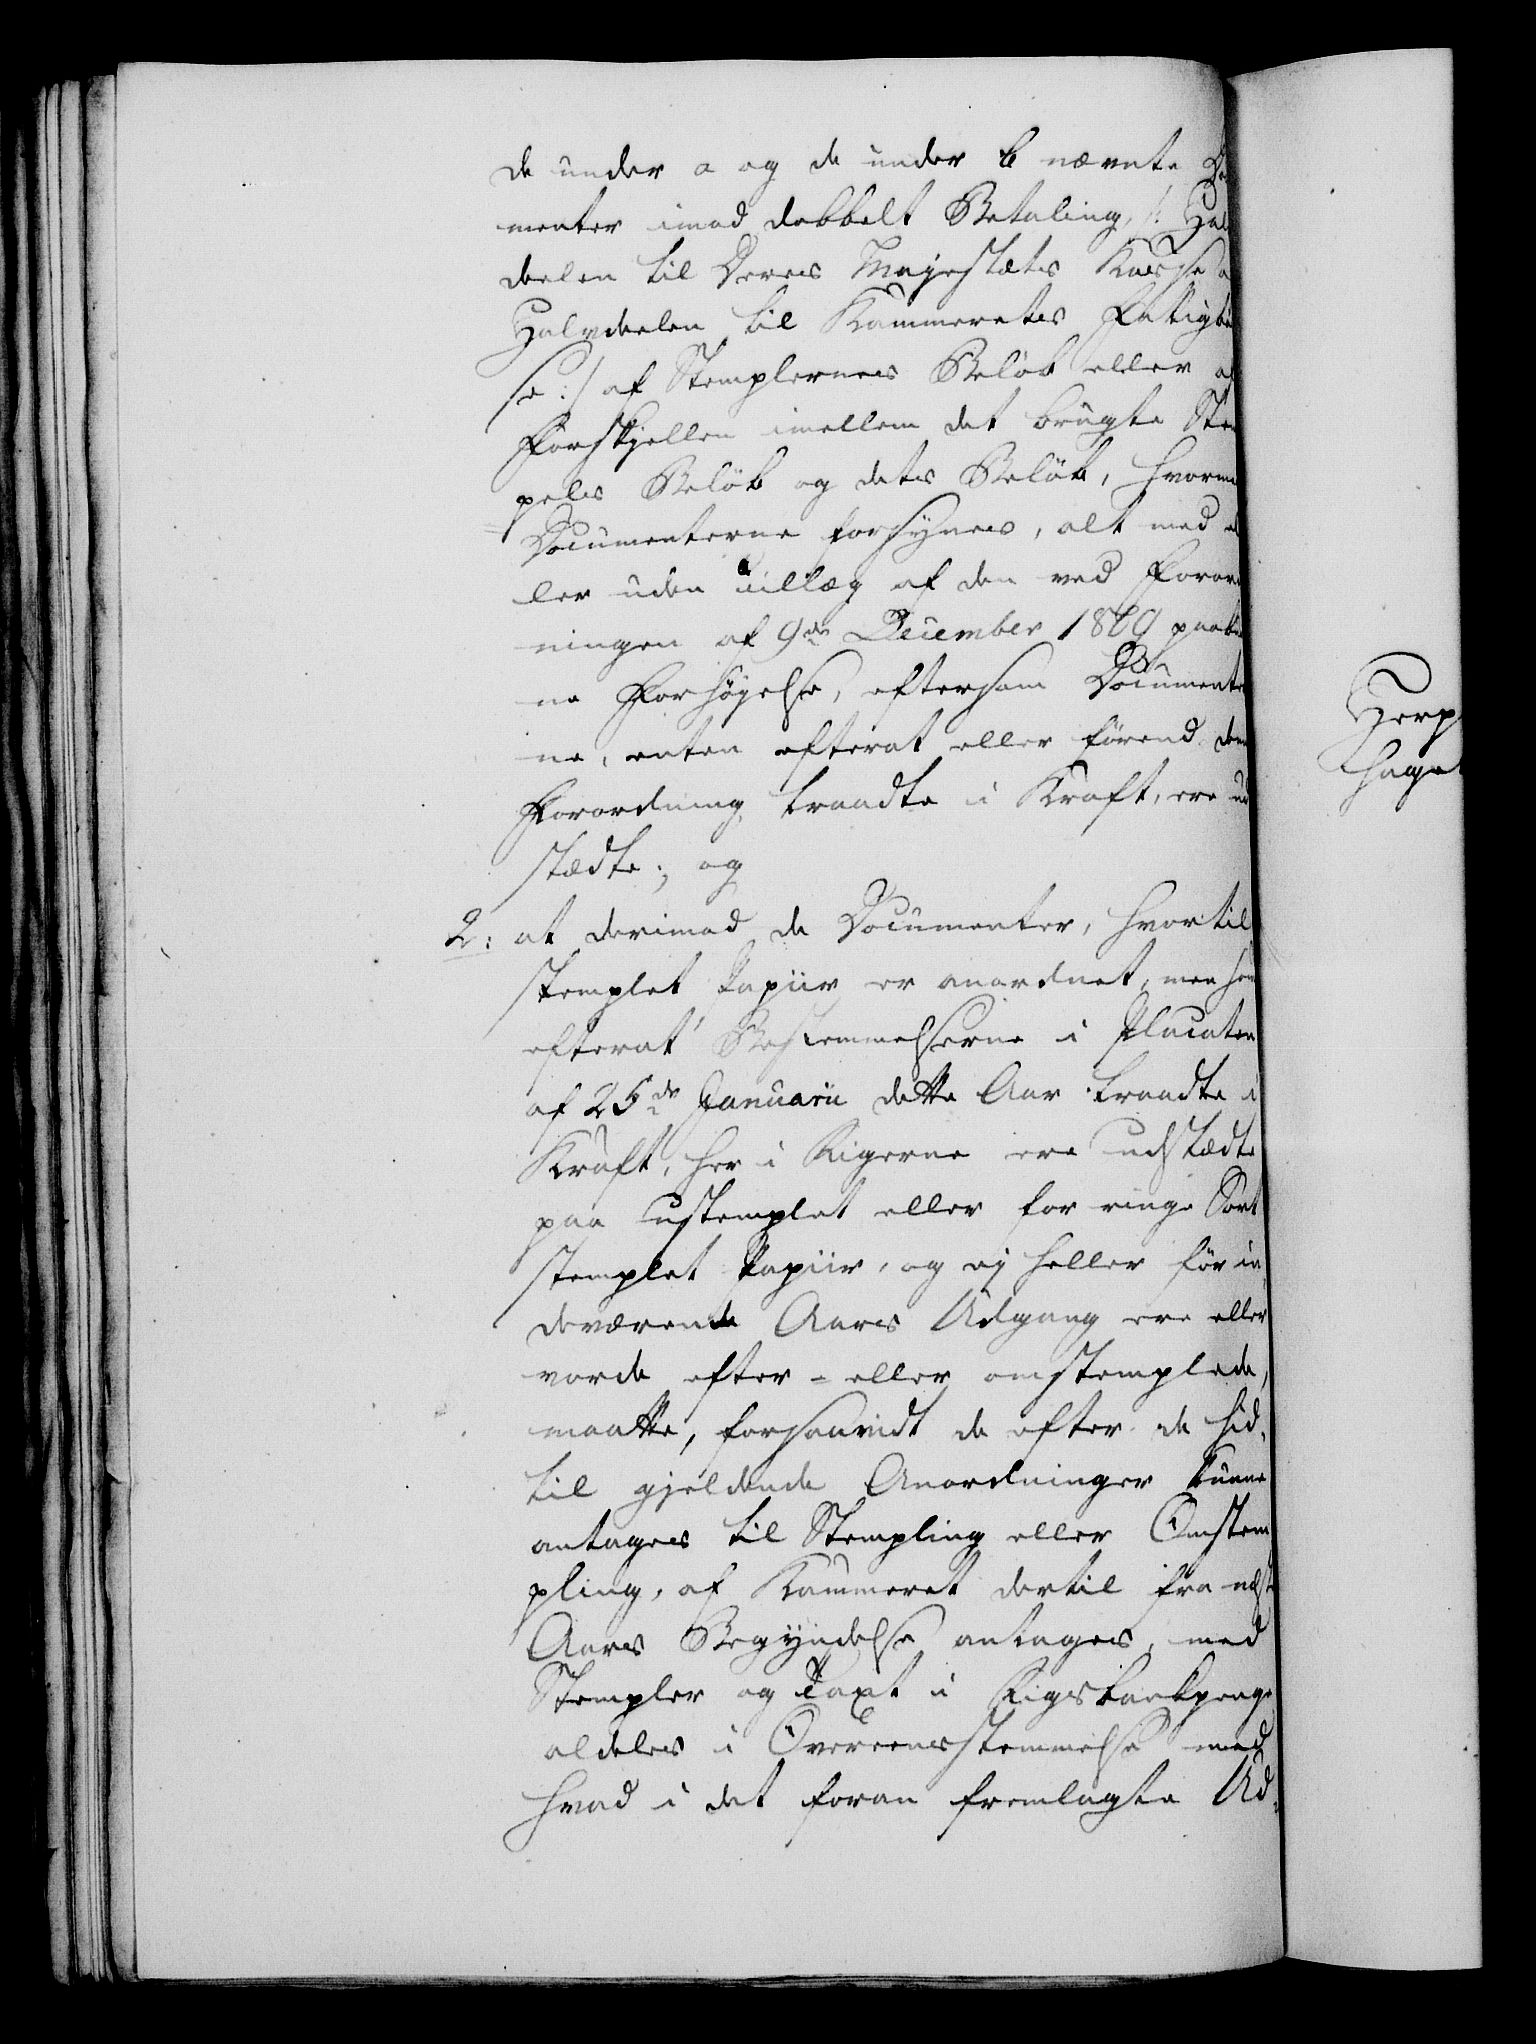 de under a og de under b nævnte Do
menter imod dobbelt Betaling, /: Hal
deelen til Deres Majestæts Kasse o
Halvdeelen til Kammerets Fattigbø
se :/ af Stemplernes Beløb eller af
Forskjellen imellem det brugte Stem
pels Beløb og dets Beløb, hvorme
Documenterne forsynes, alt med el
ler uden Tillæg af den ved Forord
ningen af 9de December 1809 paabu
ne Forhøyelse, eftersom Documenter
ne, enten efterat eller førend denne
Forordning traadte i Kraft, ere ud
stædte; og
2: at derimod de Documenter, hvortil
stemplet Papiir er anordnet, men som
efterat Bestemmelserne i Placaten
af 25de Januarii dette Aar traadte i
Kraft, her i Rigerne ere udstædte
paa ustemplet eller for ringe Sort
stemplet Papiir, og ej heller før in
deværende Aars Udgang ere eller
vorde efter- eller omstemplede,
maatte, forsaavidt de efter de hid-
til gjeldende Anordninger kunne
antages til Stempling eller Omstem
pling, af Kammeret dertil fra næste
Aars Begyndelse antages, med
Stempler og Taxt i Rigsbankpenge
aldeles i Overeensstemmelse med
hvad i det foran fremlagte Ud-